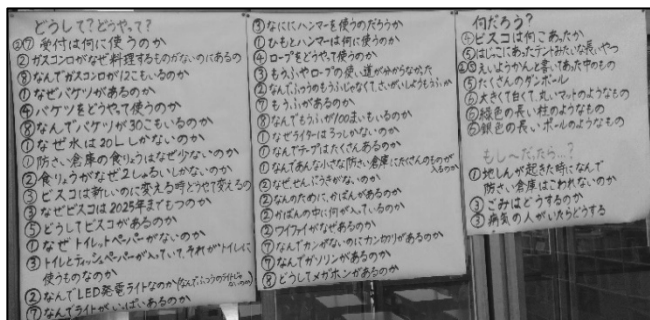 どうして?どうやって?
②⑦ 受付は何に使うのか
② ガスコンロがなぜ料理するものがないのにあるの
⑧ なんでガスコンロが12こもいるのか
① なぜバケツがあるのか
④ バケツをどうやって使うのか
⑧ なんでバケツが30こもいるのか
① なぜ水は20Lしかないのか
① 防さい倉庫の食りょうはなぜ少ないのか
② 食りょうがなぜ2しゅるいしかないのか
③ ビスコは新しいのに変える時どうやって変えるの
③ なぜビスコは2025年までもつのか
⑤ どうしてビスコがあるのか
① なぜトイレットペーパーがないのか
③ トイレとティッシュペーパーが入っていて、それがトイレに
使うものなのか
② なんでLED発電ライトなのか(なんでふつうのライトじゃ
ないのか)
⑦ なんでライトがいっぱいあるのか
③ なににハンマーを使うのだろうか
① ひもとハンマーは何に使うのか
④ ロープをどうやって使うのか
③ もうふやロープの使い道が分からなかった
② なんでふつうのもうふじゃなくて、さいがいしようもうふか
⑦ もうふがあるのか
⑧ なんでもうふが100まいもいるのか
① なぜライターは3つしかないのか
① なんでテープはたくさんあるのか
① なんであんな小さな防さい倉庫にたくさんのものが
入るのか
② なぜ、せんぷうきがないのか
② なんのために、かばんがあるのか
② かばんの中に何が入っているのか
② ワイファイがなぜあるのか
⑦ なんでカンがないのにカン切りがあるのか
⑦ なんでガソリンがあるのか
⑧ どうしてメガホンがあるのか
何だろう?
④ ビスコは何こあったか
⑤ はじっこにあったテントみたいな長いやつ
えいようかんと書いてあった中のもの
⑤ たくさんのダンボール
⑥ 大きくて白くて、丸いマットのようなもの
⑥ 緑色の長い柱のようなもの
⑥ 銀色の長いポールのようなもの
もし~だったら…?
① 地しんが起きた時になんで
防さい倉庫はこわれないのか
③ ごみはどうするのか
③ 病気の人がいたらどうする